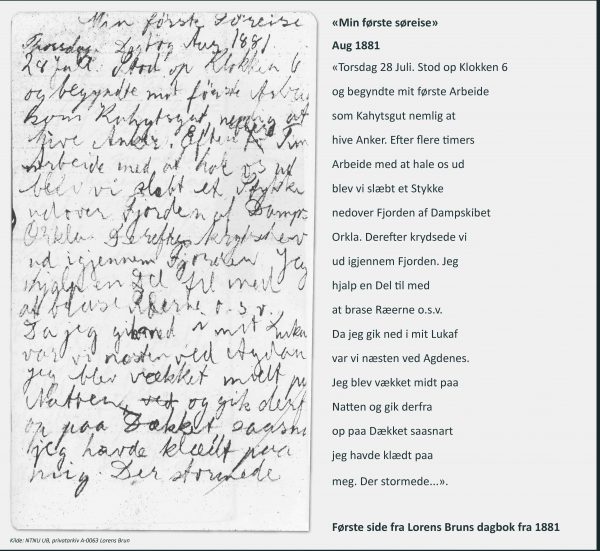 Min første Søreise
Dagbog Aug 1881.
28 Juli. Stod op Klokken 6
og begyndte mit første Arbei
som Kahytsgut nemlig at
hive Anker. Efter flere Tim
Arbeide med at hale os ud
blev vi slæbt et Stykke
nedover Fjorden af Damps
Orkla. Derefter krydsede vi
ud igjennem Fjorden Jeg
hjalp en Del til med
at brase Ræerne o.s.v.
Da jeg gik ned i mit Luka
var vi næsten ved Agdan
jeg blev vækket midt pa
Natten og gik derf
op paa Dækket saasna
jeg havde klædt paa
mig. Der stormede
Kilde: NTNU UB, privatarkiv A-0063 Lorens Brun
«Min første søreise»
Aug 1881
«Torsdag 28 Juli. Stod op Klokken 6
og begyndte mit første Arbeide
som Kahytsgut nemlig at
hive Anker. Efter flere timers
Arbeide med at hale os ud
blev vi slæbt et Stykke
nedover Fjorden af Dampskibet
Orkla. Derefter krydsede vi
ud igjennem Fjorden. Jeg
hjalp en Del til med
at brase Ræerne o.s.v.
Da jeg gik ned i mit Lukaf
var vi næsten ved Agdenes.
Jeg blev vækket midt paa
Natten og gik derfra
op paa Dækket saasnart
jeg havde klædt paa
meg. Der stormede...».
Første side fra Lorens Bruns dagbok fra 1881